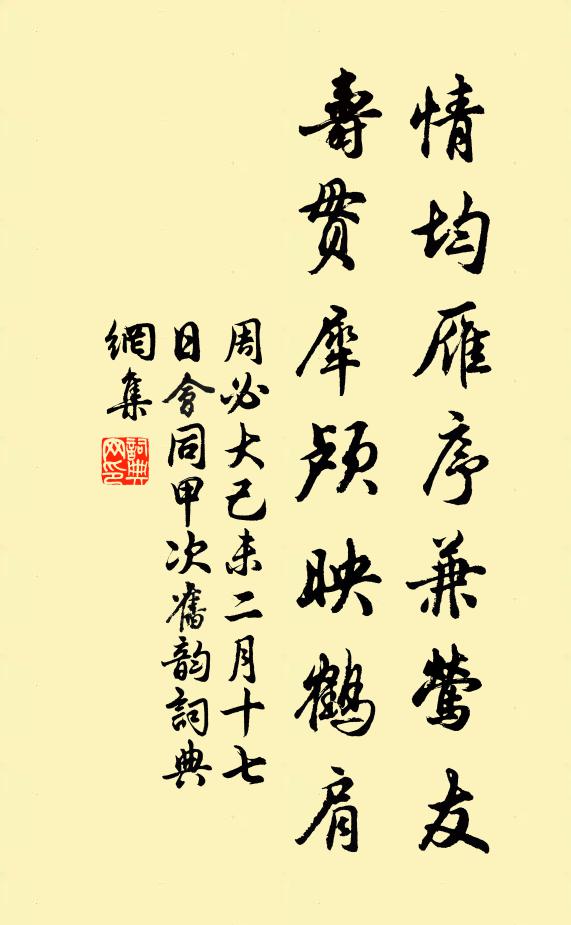 情均雁序兼鶯友
壽貫犀顱映鶴肩
周必大己未二月十七
日會同甲次舊韵詞典
網集
詞典
网印